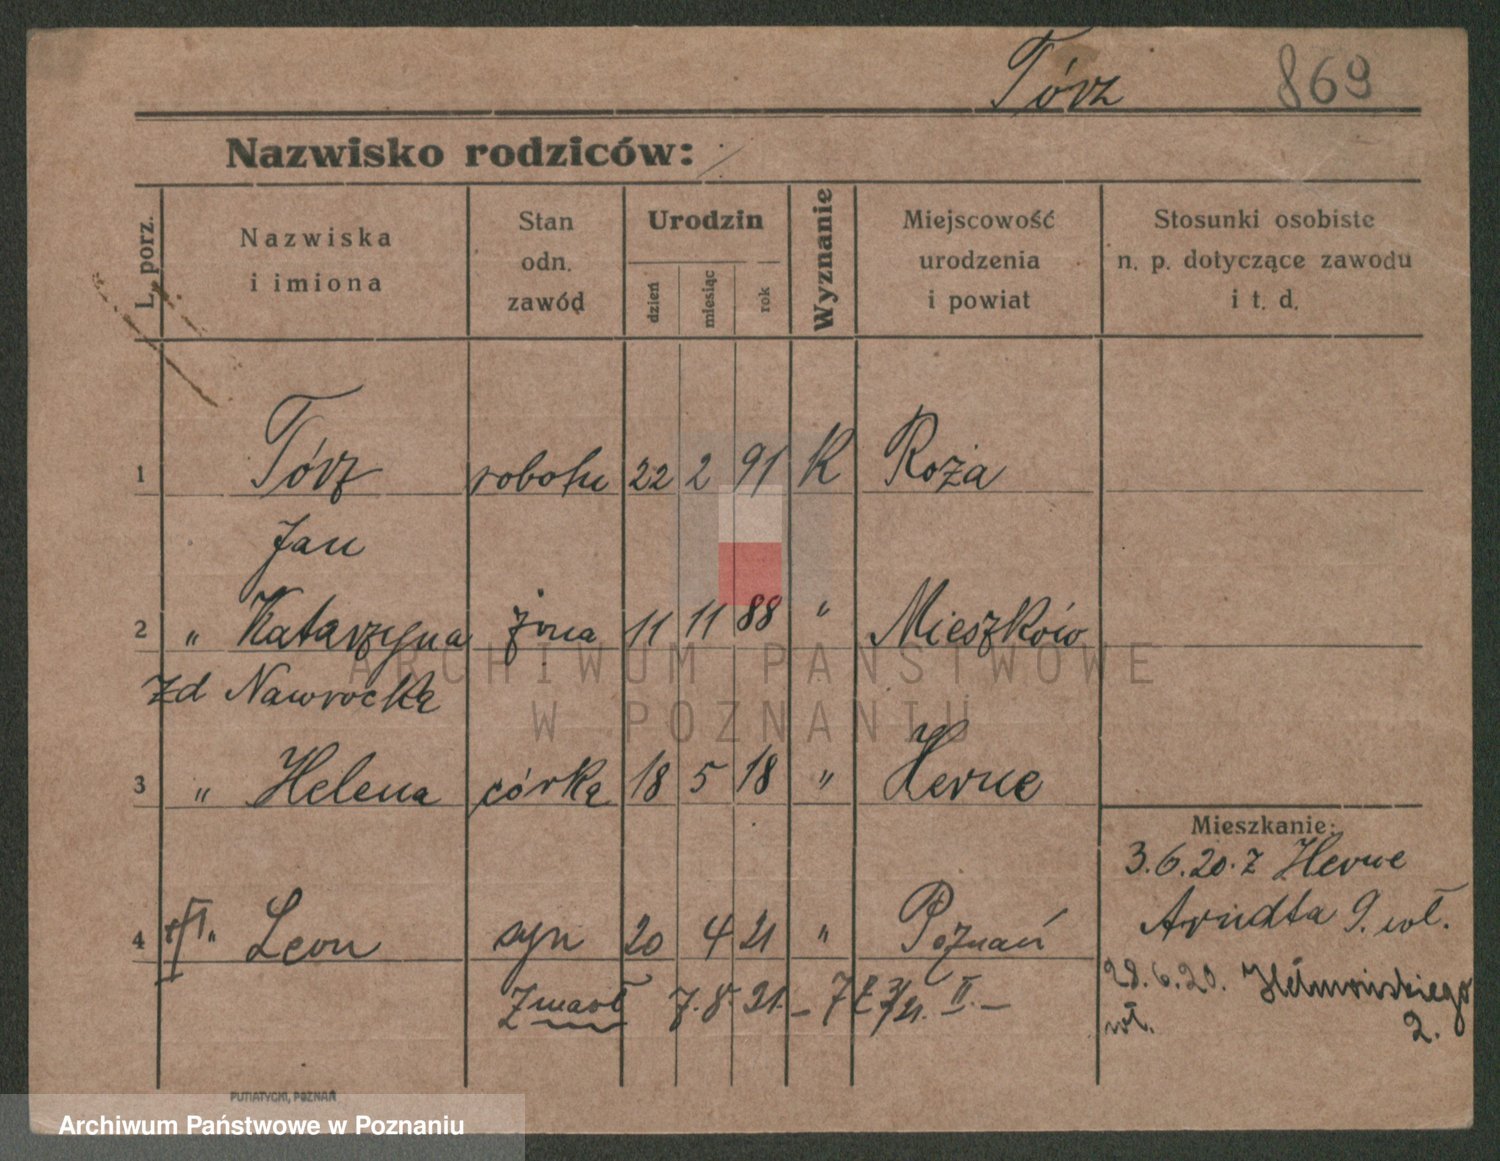 Tórz 869
Nazwisko rodziców:
L. porz.
Nazwiska
i imiona
Stan
odn.
zawód
Urodzin
dzień
miesiąc
rok
Wyznanie
Miejscowość
urodzenia
i powiat
Stosunki osobiste
n. p. dotyczące zawodu
i t. d.
1 Tórz robotn 22 2 91 K Roża
Jan
2 " Katarzyna żona 11 11 88 " Mieszków
zd Nawrocka
3 " Helena córka 18 5 18 " Herne
Mieszkanie:
3.6.20. z Herne
Arndta 9. wł.
4 " Leon syn 20 4 21 " Poznań
28.6.20. Hełmońskiego
wł. 2.
Zmarł 7.8.21. II.
PUTIATYCKI, POZNAŃ
ARCHIWUM PAŃSTWOWE
W POZNANIU
Archiwum Państwowe w Poznaniu